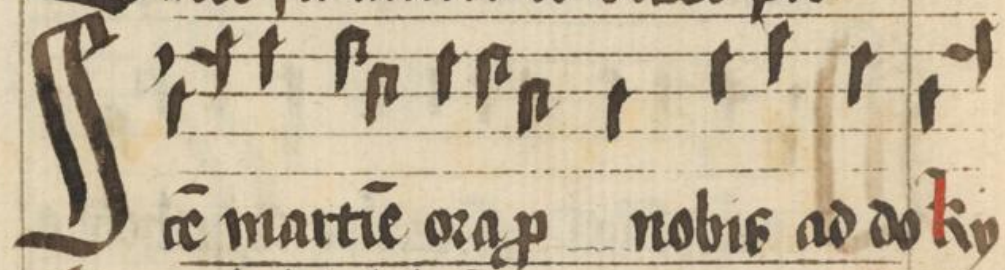 Scē martiē ora ꝓ nobis ad do Ky